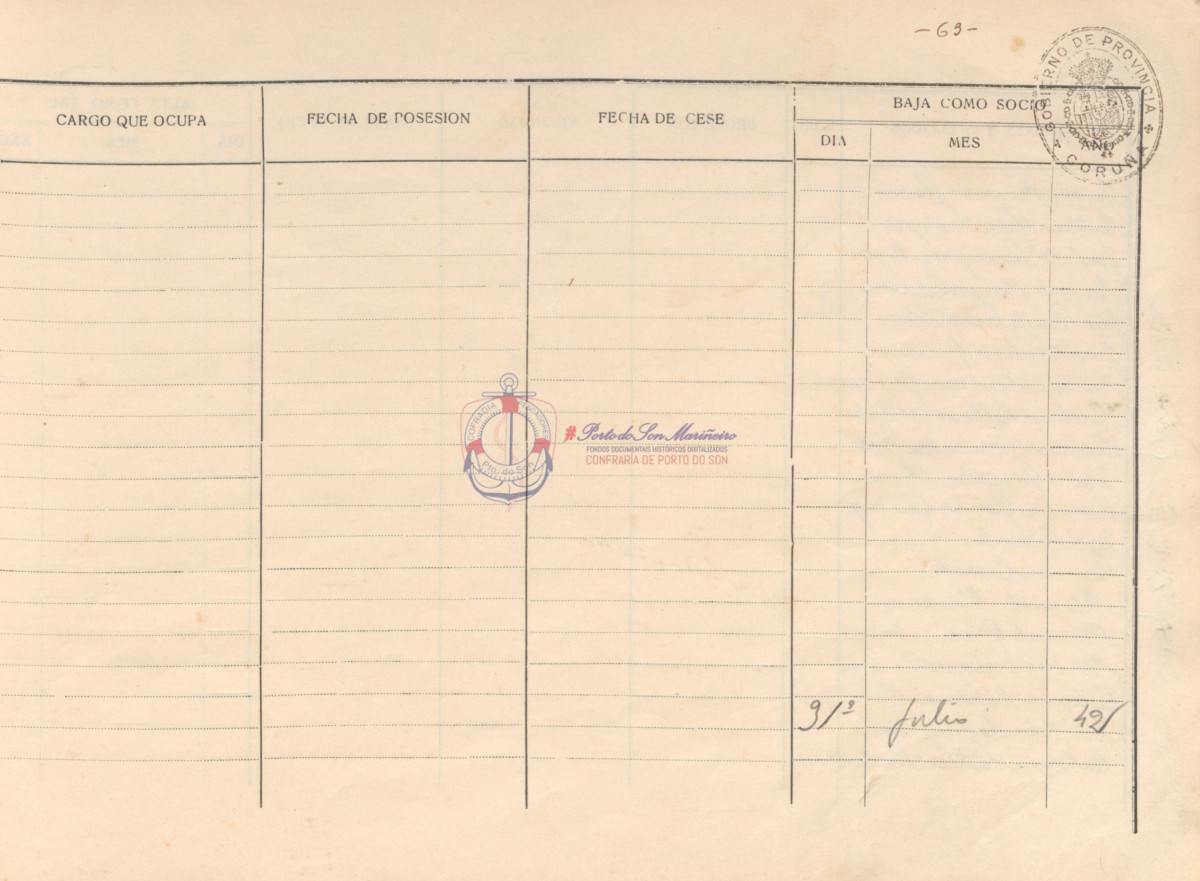 -63-
GOBIERNO DE PROVINCIA
CORUÑA
BAJA COMO SOCIO
CARGO QUE OCUPA
FECHA DE POSESION
FECHA DE CESE
DIA
MES
AÑO
COFRADIA PESCADORES
Pto. do Son
#Porto do Son Mariñeiro
FONDOS DOCUMENTAIS HISTÓRICOS DIXITALIZADOS
CONFRARÍA DE PORTO DO SON
Julio
42